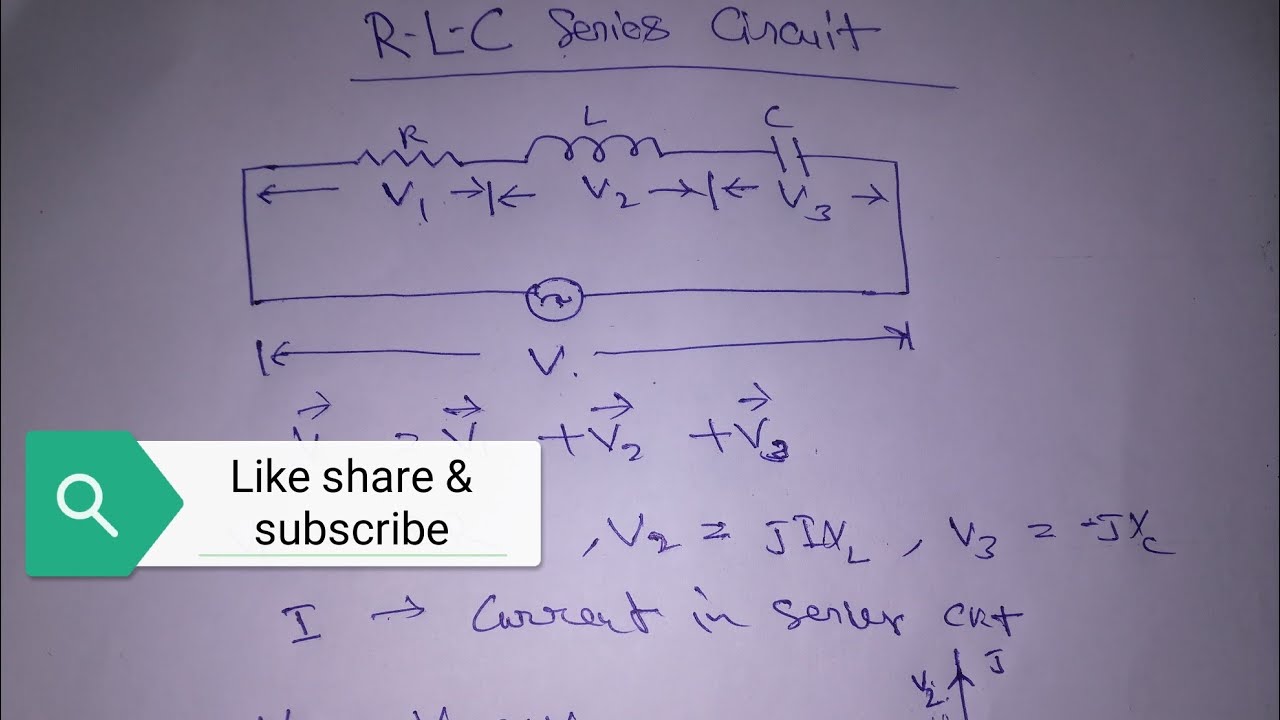 R-L-C Series Circuit
R L C
V1 V2 V3
V.
V = V + V2 + V3
Like share &
subscribe
, V2 = JIXL , V3 = -JXC
I → Current in series CKT
V2 J